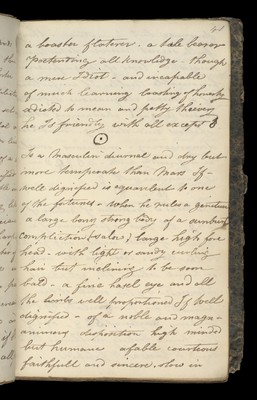 41
a boaster flaterer. a tale bearer
pretending all knowledge - though
a mere Idiot - and incapable
of much learning boasting of honesty
adicted to mean and petty thieving
he Is friendly with all except ♂
☉
Is a Masculin diurnal and dry but
more temperate than Mars If
well dignified is equevelent to one
of the fortunes - when he rules a geniture
a large boney strong body of a sunburnt
Complection large high fore
head - with light or sandy curling
hair but inclining to be soon
bald - a fine hasel eye and all
the limbs well proportioned If well
dignified - of a noble and magn-
animous disposition high minded
but humane afable courteous
faithfull and sincere, slow in